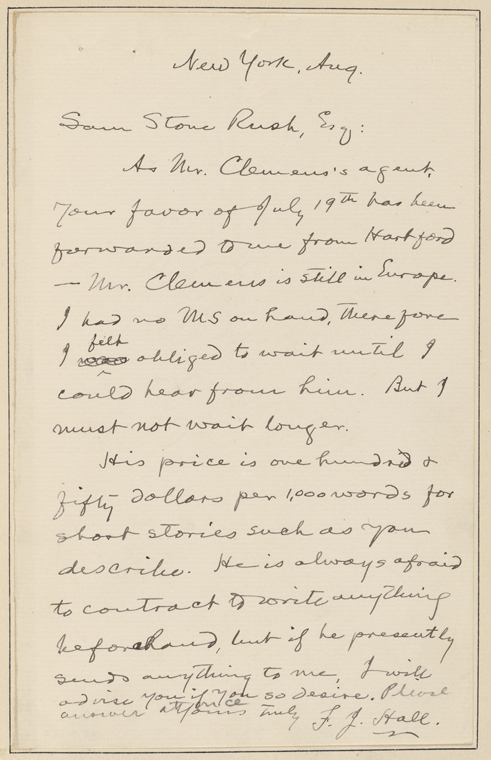 New York, Aug.
Sam Stone Rush, Esq:
As Mr. Clemens's agent,
your favor of July 19th has been
forwarded to me from Hartford
— Mr. Clemens is still in Europe.
I had no MS on hand, therefore
I felt obliged to wait until I
could hear from him. But I
must not wait longer.
His price is one hundred &
fifty dollars per 1,000 words for
short stories such as you
describe. He is always afraid
to contract to write anything
beforehand, but if he presently
sends anything to me, I will
advise you if you so desire. Please
answer at once
Yours truly F. J. Hall.